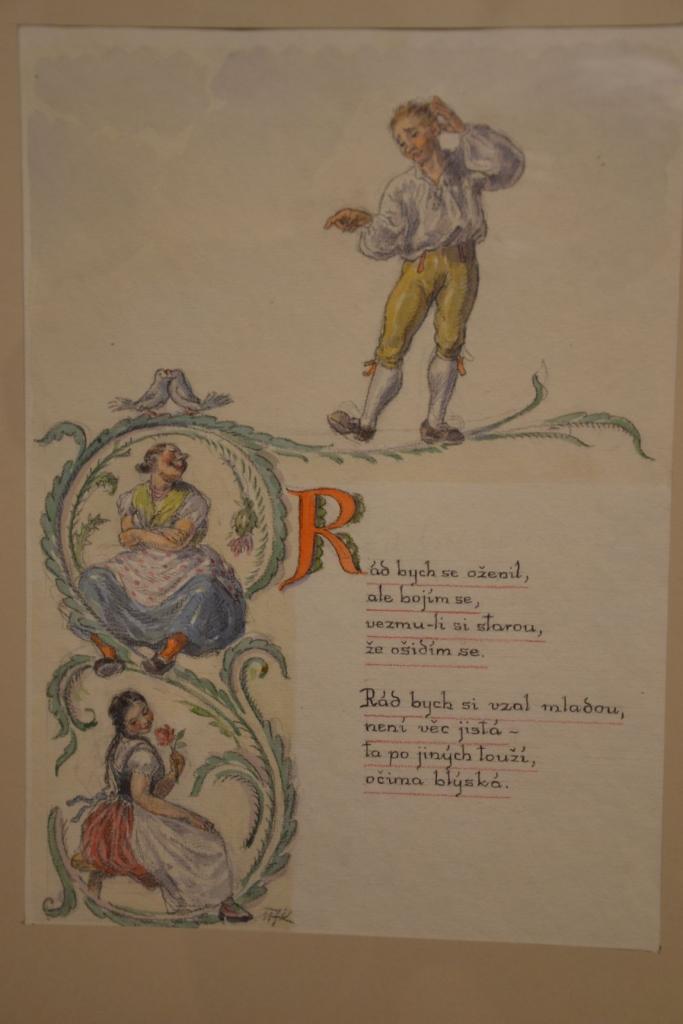 Rád bych se oženil,
ale bojím se,
vezmu-li si starou,
že ošidím se.
Rád bych si vzal mladou,
není věc jistá –
ta po jiných touží,
očima blýská.